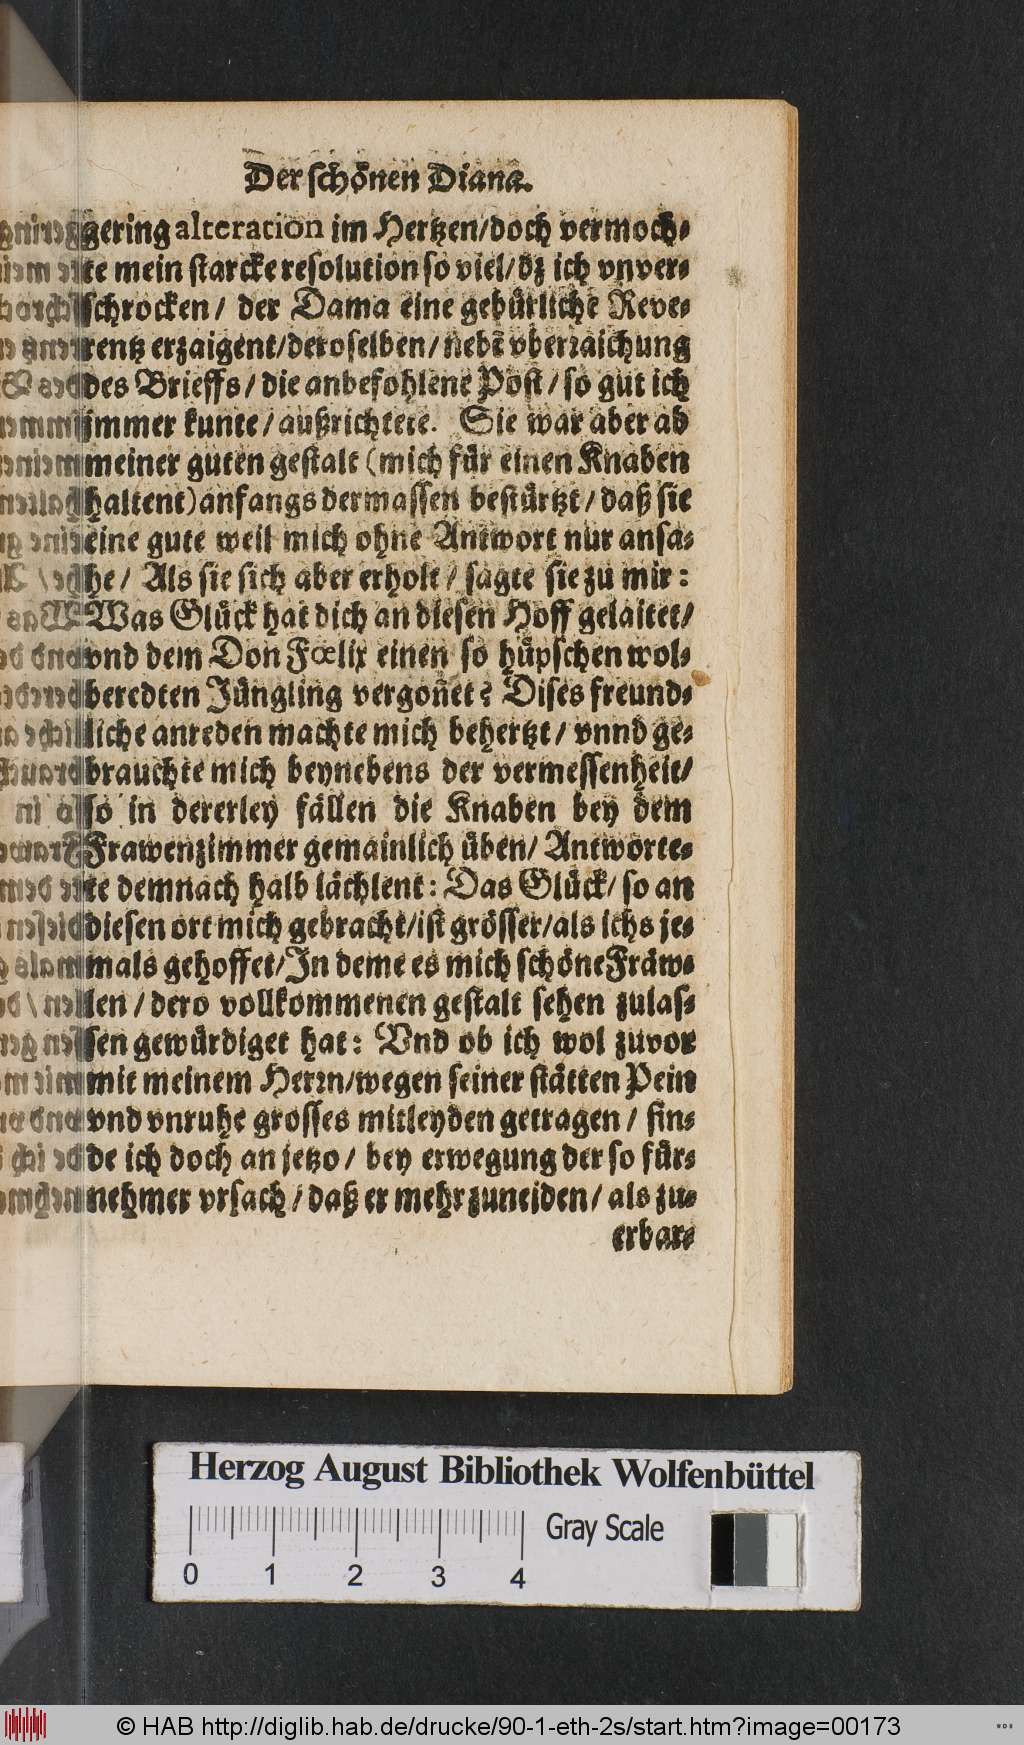 Der schönen Diana.
gering alteration im Hertzen/doch vermöch-
te mein starcke resolution so viel/dz ich vnver-
schrocken/ der Dama eine gebürliche Reve-
rentz erzaigent/deroselben/nebẽ vberraichung
des Brieffs/die anbefohlene Post/so gut ich
immer kunte/außrichtete. Sie war aber ab
meiner guten gestalt (mich für einen Knaben
haltent)anfangs dermassen bestürtzt/daß sie
eine gute weil mich ohne Antwort nur ansa-
he/ Als sie sich aber erholt/ sagte sie zu mir:
Was Glück hat dich an diesen Hoff gelaitet/
vnd dem Don Fœlix einen so hüpschen wol-
beredten Jüngling vergoñet? Dises freund-
liche anreden machte mich behertzt/ vnnd ge-
brauchte mich beynebens der vermessenheit/
so in dererley fällen die Knaben bey dem
Frawenzimmer gemainlich üben/ Antworte-
te demnach halb lächlent: Das Glück/ so an
diesen ort mich gebracht/ist grösser/als ichs je-
mals gehoffet/In deme es mich schöne Fräw-
len/dero vollkommenen gestalt sehen zulas-
sen gewürdiget hat: Vnd ob ich wol zuvor
mit meinem Herrn/wegen seiner stätten Pein
vnd vnruhe grosses mitleyden getragen/ fin-
de ich doch an jetzo/ bey erwegung der so für-
nehmer vrsach/daß er mehr zuneiden/als zu-
erbar-
Herzog August Bibliothek Wolfenbüttel
0 1 2 3 4 Gray Scale
© HAB http://diglib.hab.de/drucke/90-1-eth-2s/start.htm?image=00173